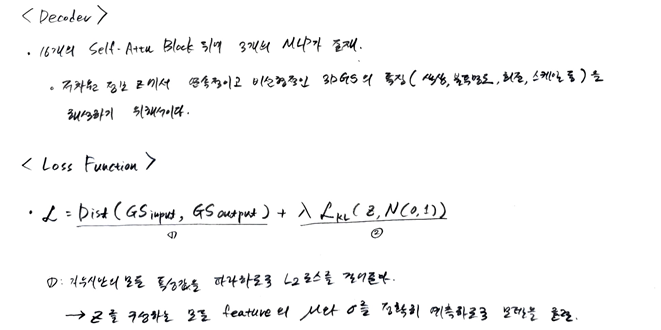 < Decoder >
· 16개의 Self-Attn Block 뒤에 3개의 MLP가 존재.
◦ 저차원 정보 Z에서 연속적이고 비선형적인 3DGS의 특징( 색상, 불투명도, 회전, 스케일 등 )을
해석하기 위해서이다.
< Loss Function >
· L = Dist( GSinput, GSoutput ) + λ LKL( Z, N(0,1) )
① ②
①: 가우시안의 모든 특성값을 하나하나로 L2로스를 걸어준다.
→ Z를 구성하는 모든 feature의 μ와 σ를 정확히 예측하도록 모델을 훈련.